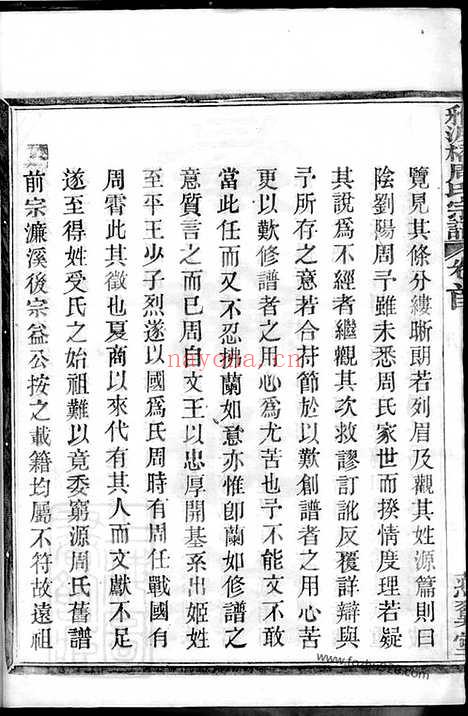 周氏宗譜
卷首
覽見其條分縷晰朗若列眉及觀其姓源篇則曰
陰劉陽周予雖未悉周氏家世而揆情度理若疑
其說爲不經者繼觀其次救謬訂訛反覆詳辯與
予所存之意若合苻節於以歎創譜者之用心苦
更以歎修譜者之用心爲尤苦也予不能文不敢
當此任而又不忍拂蘭如意亦惟卽蘭如修譜之
意質言之而已周自文王以忠厚開基系出姬姓
至平王少子烈遂以國爲氏周時有周任戰國有
周霄此其徵也夏商以來代有其人而文獻不足
遂至得姓受氏之始祖難以竟委窮源周氏舊譜
前宗濂溪後宗益公按之載籍均屬不符故遠祖
nayona.cn